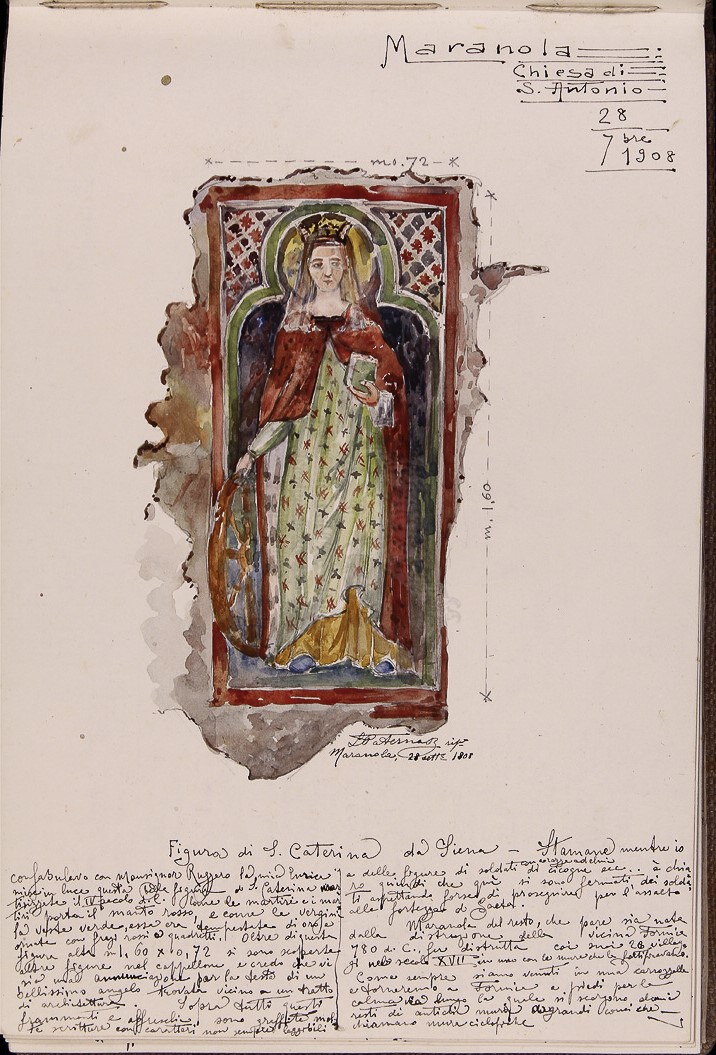 Maranola
Chiesa di
S. Antonio
28
7bre
1908
m 0.72
m. 1,60
Maranola, 28 sett. 1908
Figura di S. Caterina da Siena — Stamane mentre io
confabulavo con Monsignor Ruggero la mia Enrica
mise in luce questa figura di S. Caterina mar
tirizzata il IV secolo d. C. Come le martiri e i mar
tiri porta il manto rosso, e come le vergini
la veste verde, essa era tempestata di oro e
ornata con fregi rossi a quadretti. Oltre di questa
figura alta m 1,60 x 0,72 si sono scoperte
altre figure nel cappellone e credo che vi
sia una per la testa di un
bellissimo angelo trovata vicino a un tratto
di architettura. Sopra tutti questi
frammenti e affreschi sono graffite mol
te scritture con caratteri non sempre leggibili
e delle figure di soldati con corazze ed elmi di cicogne ecc.. è chia
ro quindi che qui si sono fermati dei solda
ti aspettando forse di proseguire per l'assalto
alla fortezza di Gaeta.
Maranola del resto, che pare sia nata
dalla distruzione della vicina Formia
780 d. C. fu distrutta coi suoi 28 villag
gi nel secolo XVII
Come sempre siamo venuti in una carrozzella
e torneremo a Formia a piedi per la
lungo la quale si scorgono alcuni
resti di antichi muri a grandi conci che
chiamano mura ciclopiche